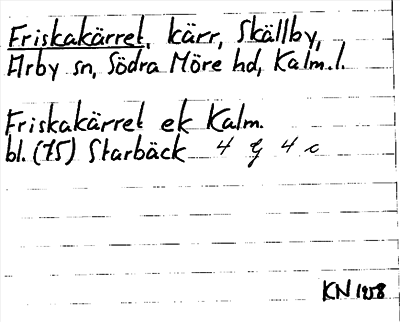 Friskakärret, kärr, Skällby,
Arby sn, Södra Möre hd, Kalm.l.
Friskakärret ek Kalm.
bl. (75) Starbäck 4 G 4 c
KN 1958